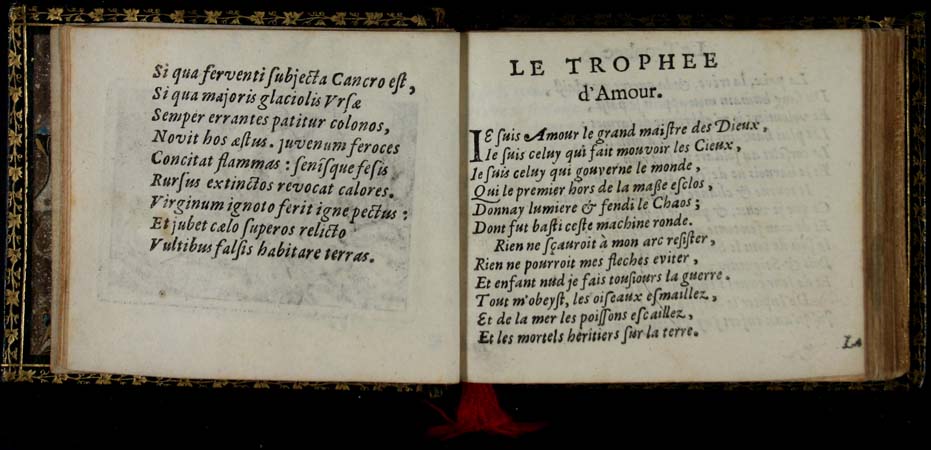 Si qua ferventi ſubjecta Cancro eſt,
Si qua majoris glaciolis Vrſæ
Semper errantes patitur colonos,
Novit hos æſtus. juvenum feroces
Concitat flammas: ſeniſque feſis
Rurſus extinctos revocat calores.
Virginum ignoto ferit igne pectus:
Et jubet cælo ſuperos relicto
Vultibus falſis habitare terras.
LE TROPHEE
d'Amour.
IE ſuis Amour le grand maiſtre des Dieux,
Ie ſuis celuy qui fait mouvoir les Cieux,
Ie ſuis celuy qui gouverne le monde,
Qui le premier hors de la maße eſclos,
Donnay lumiere & fendi le Chaos;
Dont fut baſti ceſte machine ronde.
Rien ne ſçauroit à mon arc reſiſter,
Rien ne pourroit mes fleches eviter,
Et enfant nud je fais touſiours la guerre.
Tout m'obeyſt, les oiſeaux eſmaillez,
Et de la mer les poiſſons eſcaillez,
Et les mortels heritiers ſur la terre.
La